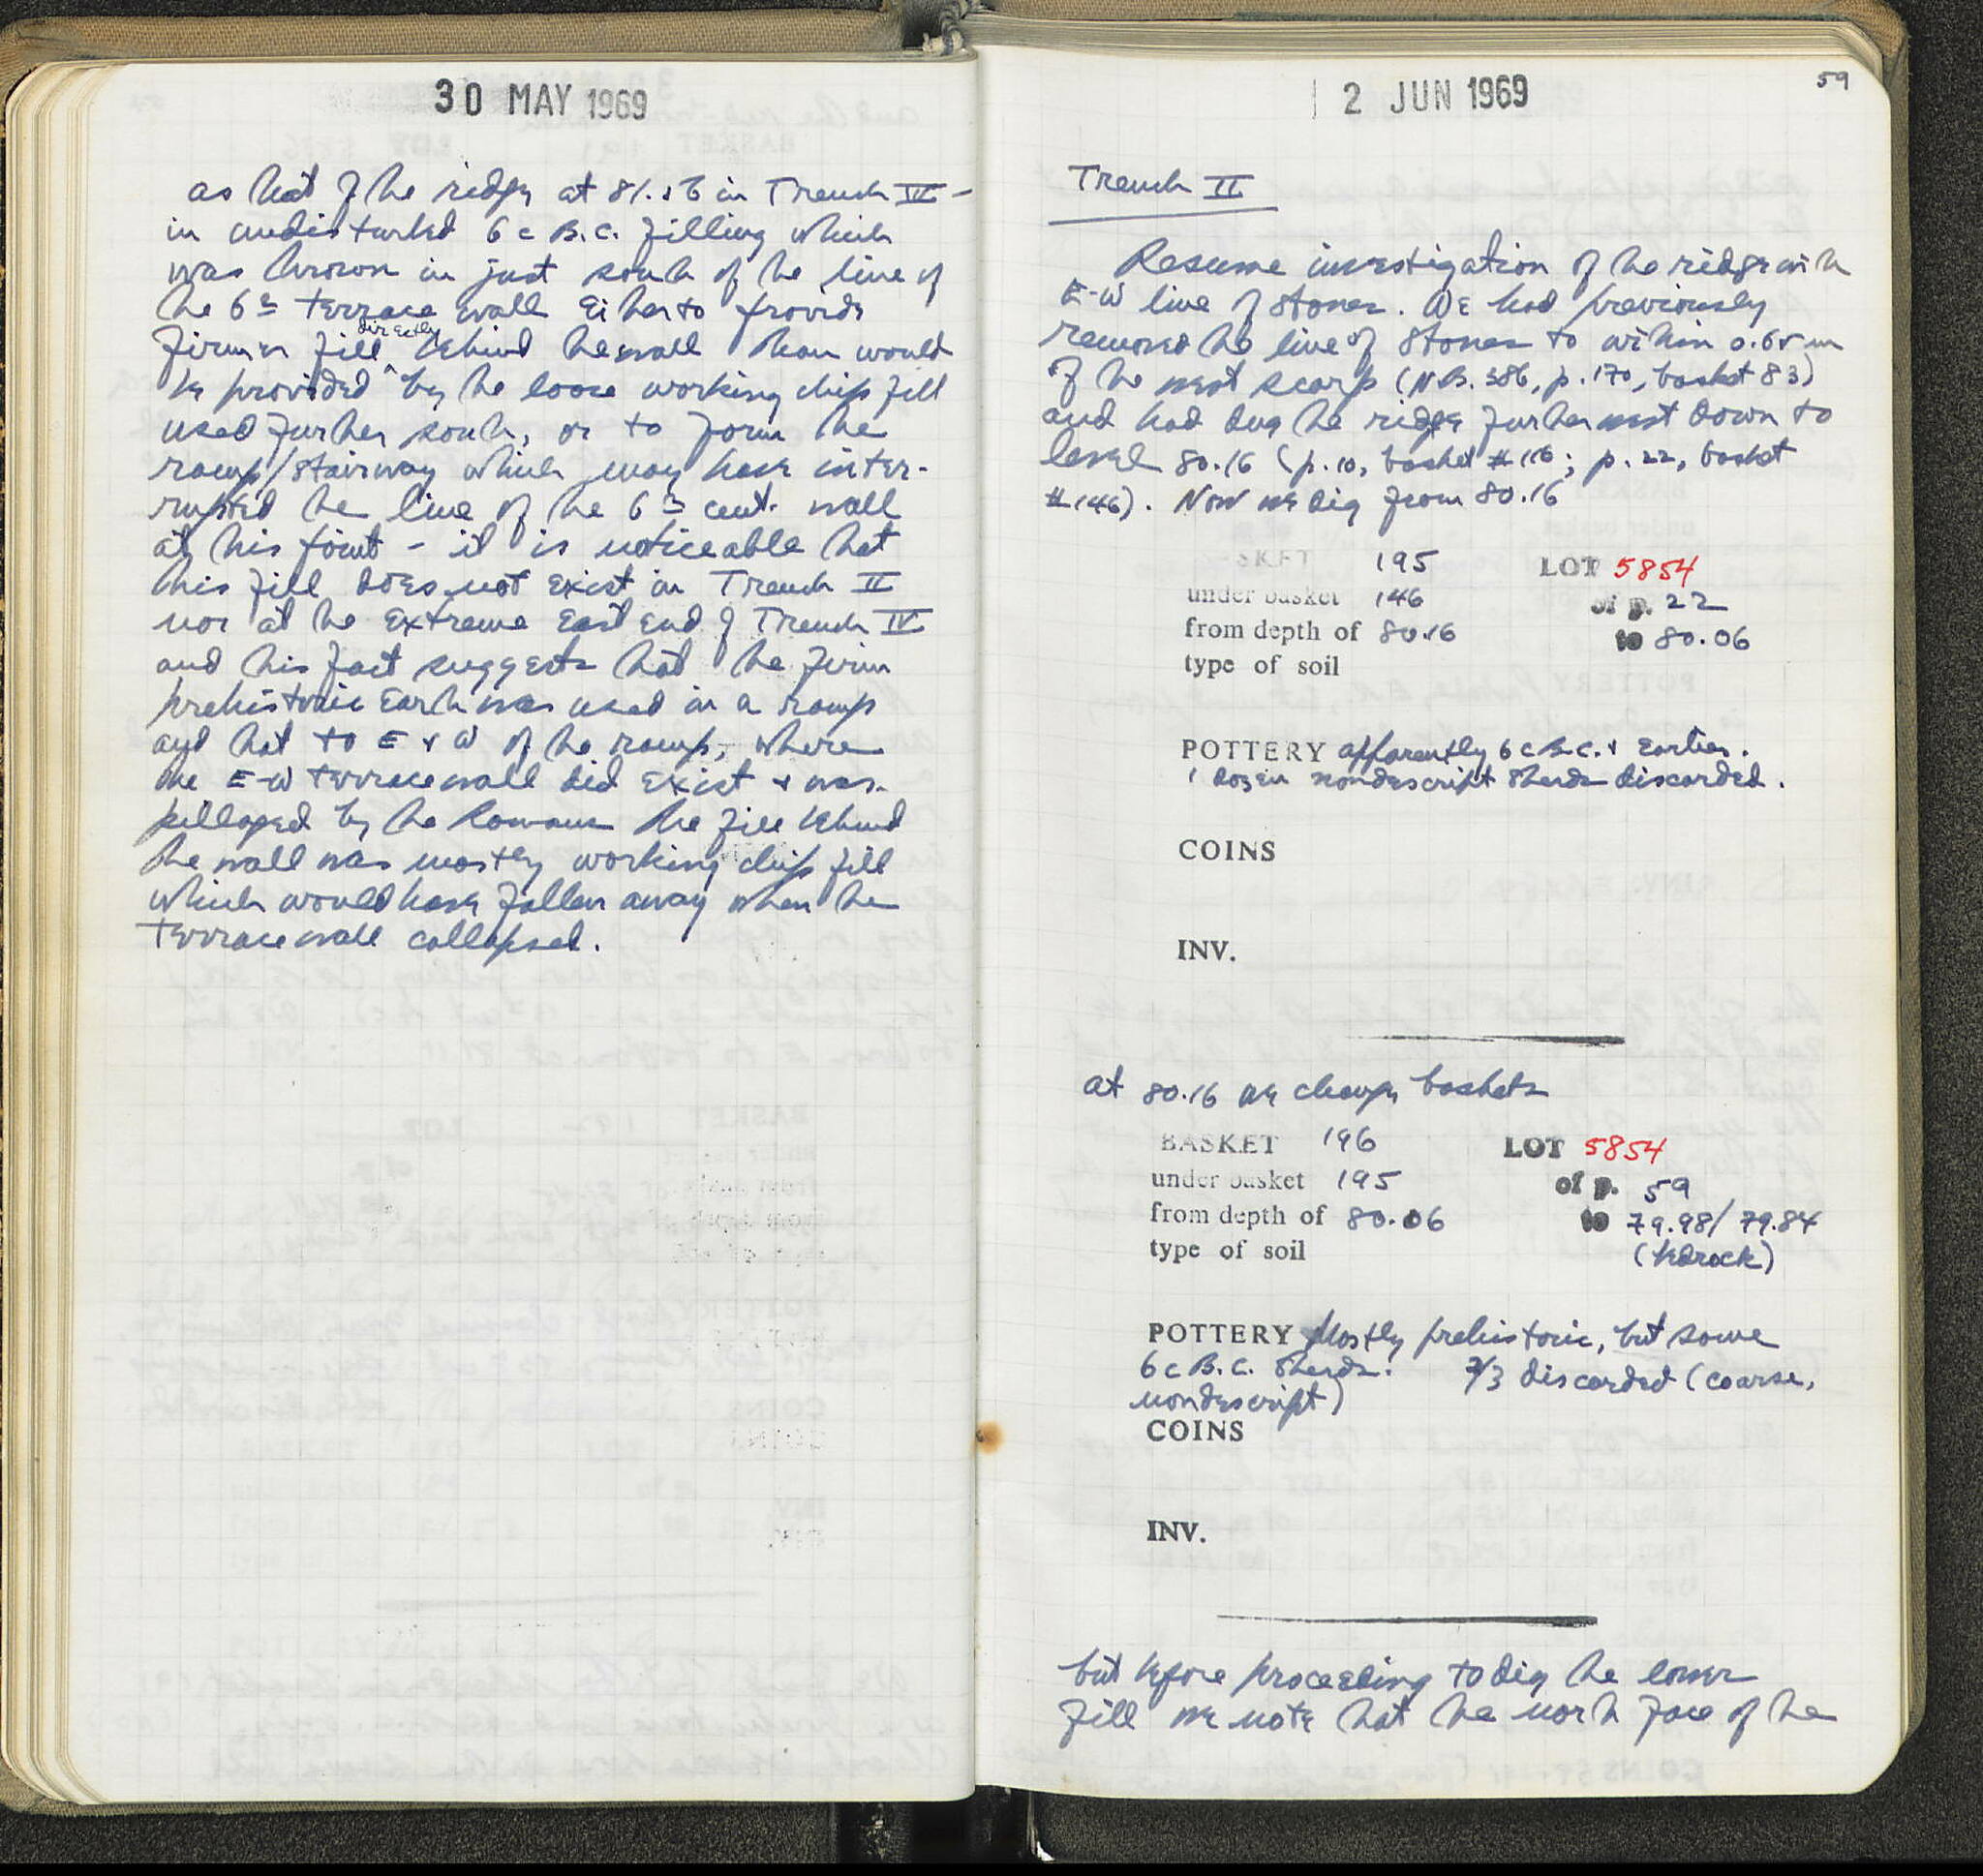 30 MAY 1969
as that of the ridge at 81.56 in Trench IV -
in undisturbed 6 c B.C. filling which
was thrown in just south of the line of
the 6th terrace wall either to provide
firmer fill directly behind the wall than would
be provided by the loose working chip fill
used further south, or to form the
ramp/stairway which may have inter-
rupted the line of the 6th cent. wall
at this point - it is noticeable that
this fill does not exist in Trench II
nor at the extreme East end of Trench IV
and this fact suggests that the firm
prehistoric earth was used in a ramp
and that to E & W of the ramp, where
the E-W terrace wall did exist & was
pillaged by the Romans the fill behind
the wall was mostly working chip fill
which would have fallen away when the
terrace wall collapsed.
2 JUN 1969
59
Trench II
Resume investigation of the ridge with
E-W line of stones. We had previously
removed the line of stones to within 0.65 m
of the west scarp (NB. 386, p. 170, basket 83)
and had dug the ridge further west down to
level 80.16 (p. 10, basket #116; p. 22, basket
#146). Now we dig from 80.16
BASKET 195 LOT 5854
under basket 146 of p. 22
from depth of 80.16 to 80.06
type of soil
POTTERY apparently 6 c B.C. & earlier.
1 dozen nondescript sherds discarded.
COINS
INV.
at 80.16 we change baskets
BASKET 196 LOT 5854
under basket 195 of p. 59
from depth of 80.06 to 79.98/79.84
type of soil (bedrock)
POTTERY Mostly prehistoric, but some
6 c B.C. sherds. 2/3 discarded (coarse,
nondescript)
COINS
INV.
but before proceeding to dig the lower
fill we note that the north face of the